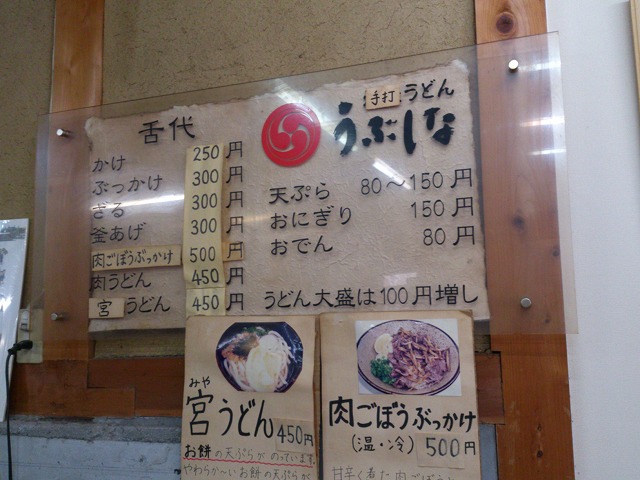 手打うどん
うぶしな
舌代
かけ 250円
ぶっかけ 300円
ざる 300円
釜あげ 300円
肉ごぼうぶっかけ 500円
肉うどん 450円
宮うどん 450円
天ぷら 80〜150円
おにぎり 150円
おでん 80円
うどん大盛は100円増し
みや
宮うどん 450円
お餅の天ぷらがのっています。
やわらか〜いお餅の天ぷらが
肉ごぼうぶっかけ
(温・冷) 500円
甘辛く煮た肉ごぼう